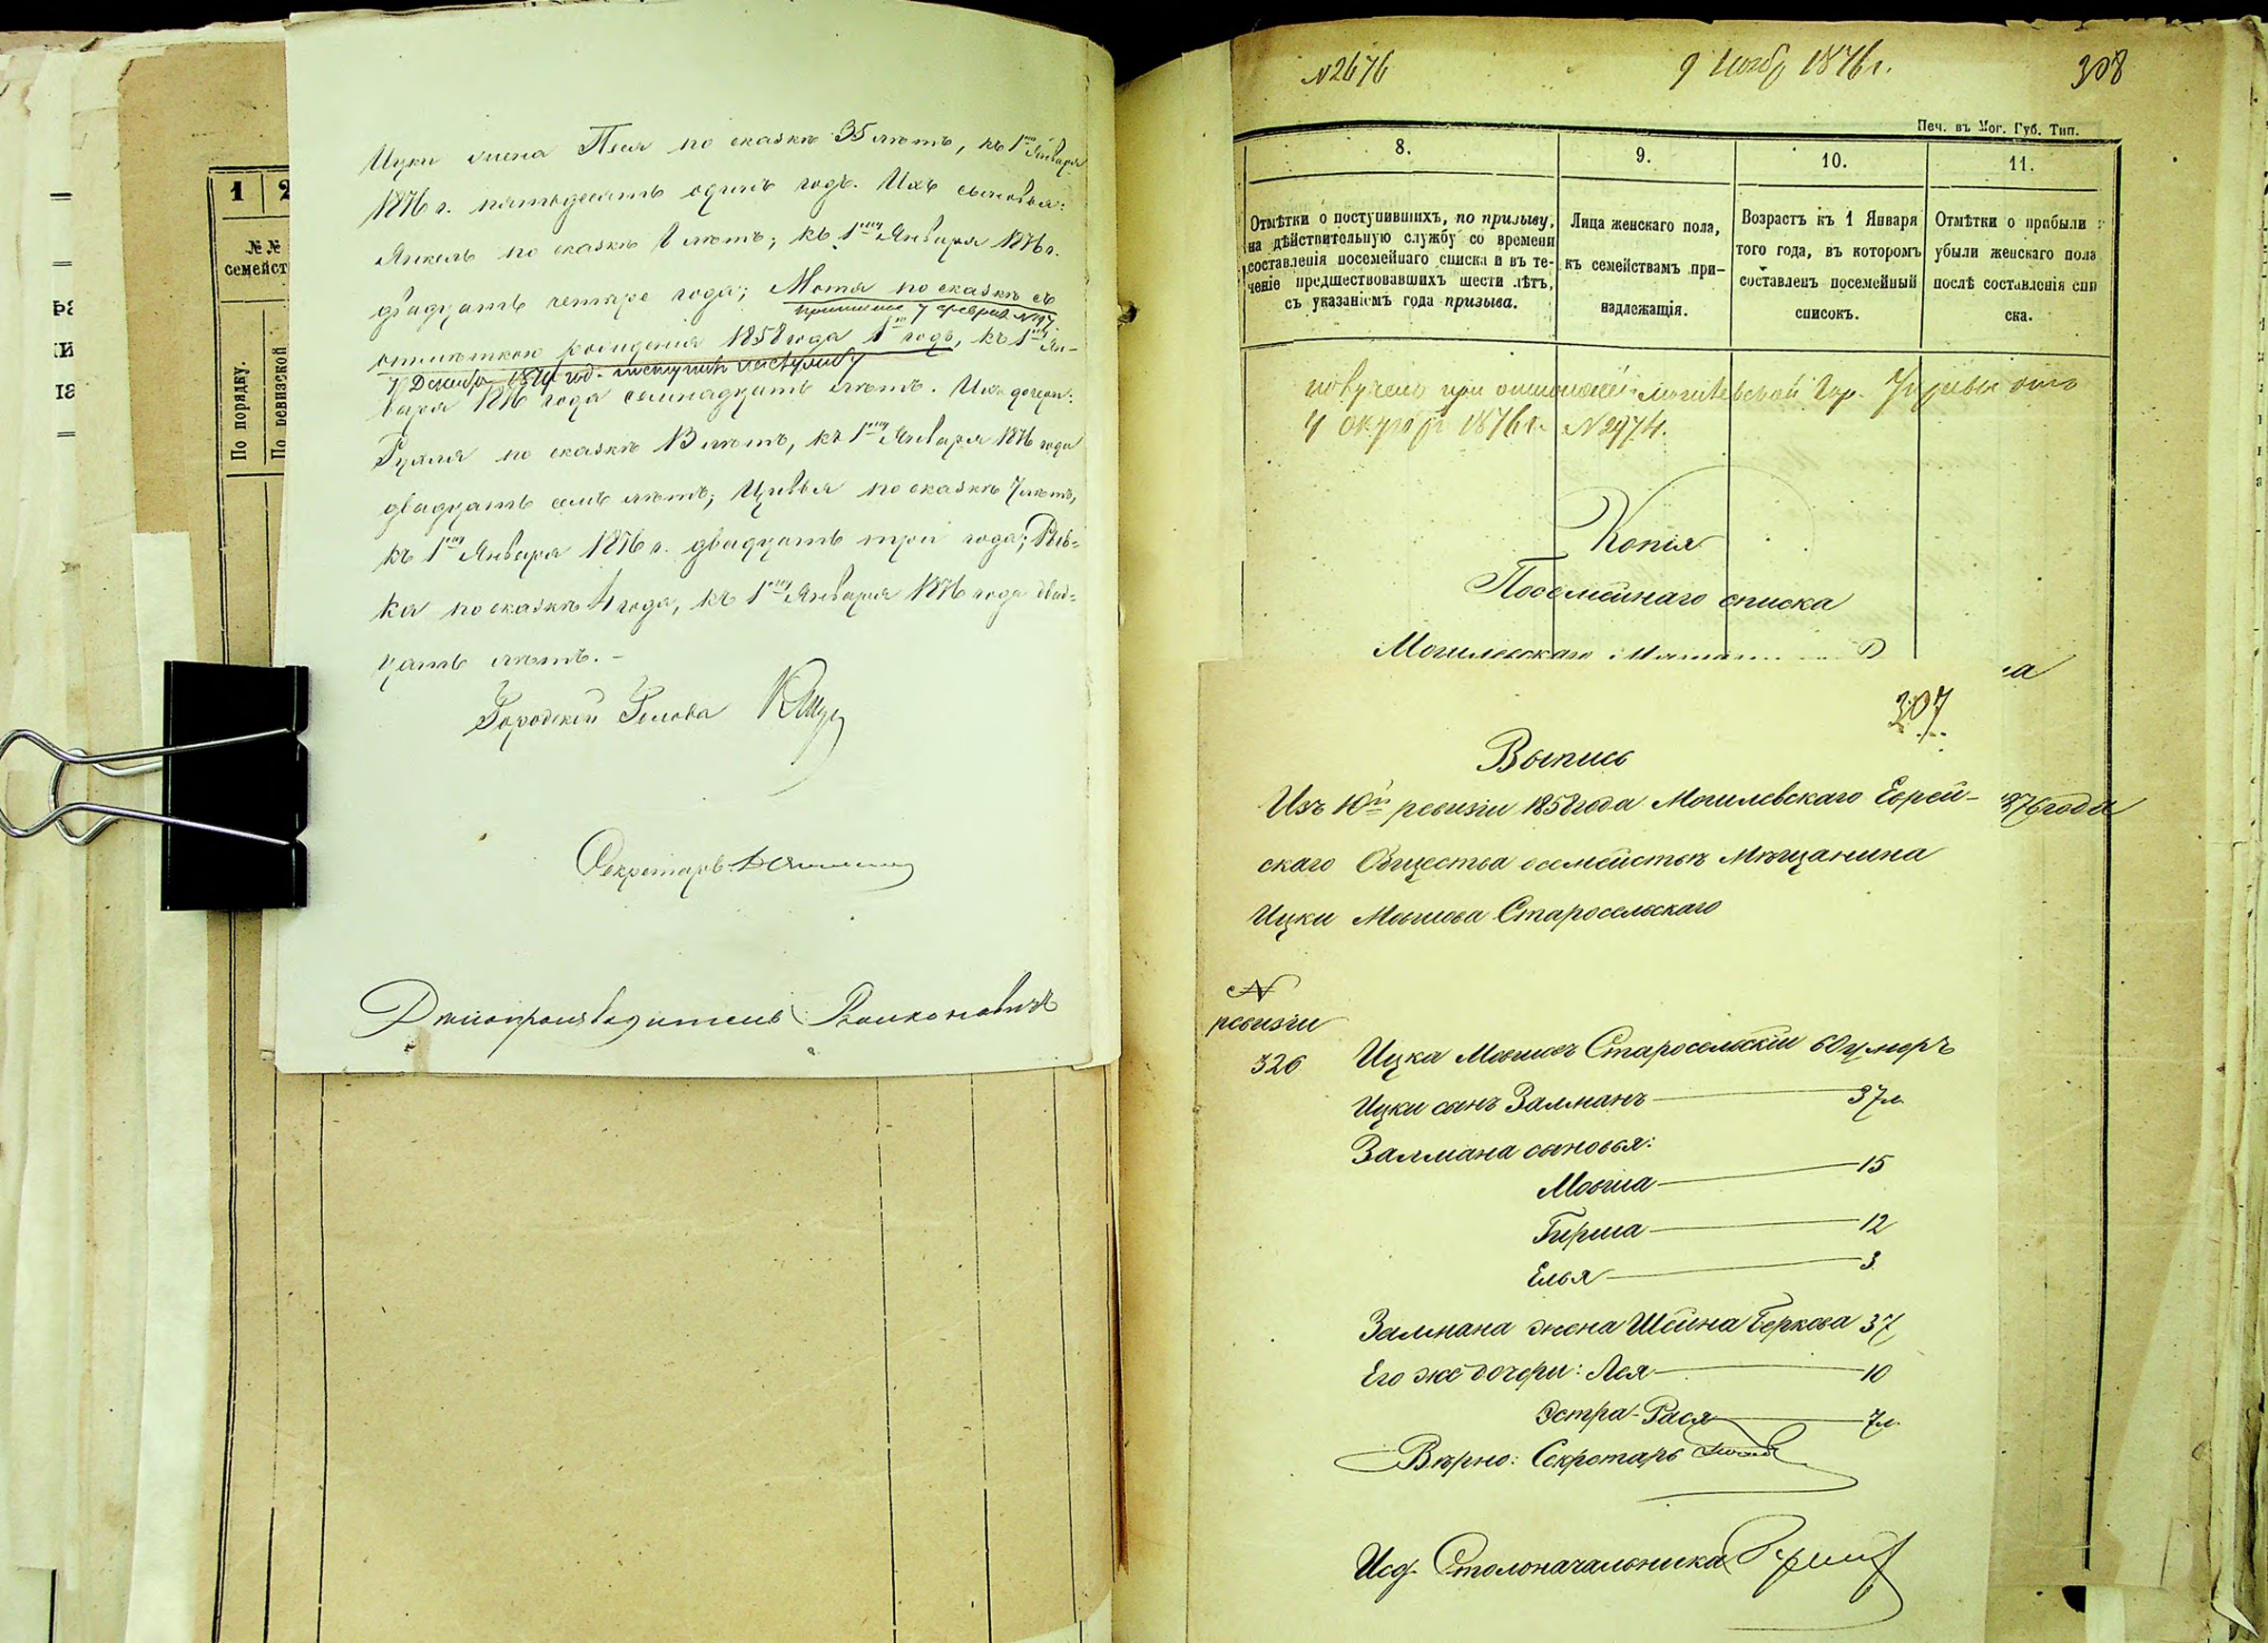 1 2
№№
семейст
По порядку.
По ревизской
Ицки жена Песя по сказкѣ 35 лѣтъ, къ 1му Января
1876 г. пятьдесятъ одинъ годъ. Ихъ сыновья:
Янкель по сказкѣ 8 лѣтъ, къ 1му Января 1876 г.
двадцать четыре года; Мотя по сказкѣ съ
отмѣткою рожденія 1858 года 1 годъ, къ 1му Ян-
варя 1876 года семнадцать лѣтъ. Ихъ дочери:
по сказкѣ 13 лѣтъ, къ 1му Января 1876 года
двадцать семь лѣтъ; Цивья по сказкѣ 7 лѣтъ,
къ 1му Января 1876 г. двадцать три года; Рыв-
ка по сказкѣ 4 года, къ 1му Января 1876 года двад-
цать лѣтъ. –
Городской Голова
Секретарь
Дѣлопроизводитель
№ 2676
9 Нояб 1876 г.
308
Печ. въ Мог. Губ. Тип.
8. 9. 10. 11.
Отмѣтки о поступившихъ, по призыву,
на дѣйствительную службу со времени
составленія посемейнаго списка и въ те-
ченіе предшествовавшихъ шести лѣтъ,
съ указаніемъ года призыва.
Лица женскаго пола,
къ семействамъ при-
надлежащія.
Возрастъ къ 1 Января
того года, въ которомъ
составленъ посемейный
списокъ.
Отмѣтки о прибыли и
убыли женскаго пола
послѣ составленія спи
ска.
получено при Могилевской Гор. Управы отъ
4 Октября 1876 г. № 2974.
Копія
Посемейнаго списка
Могилевскаго
307
Выпись
Изъ 10й ревизіи 1858 года Могилевскаго Еврей-
скаго Общества о семействѣ Мѣщанина
Ицки Мовшова Старосельскаго
876 года
№
ревизіи
326 Ицка Мовшовъ Старосельскій 60 умеръ
Ицки сынъ Залманъ — 37 л.
Залмана сыновья:
Мовша — 15
Гирша — 12
Елья — 3
Залмана жена Шейна Беркова 37
Его же дочери: Лея — 10
Эстра-Рася — 7 л.
Вѣрно: Секретарь
Исд. Столоначальника